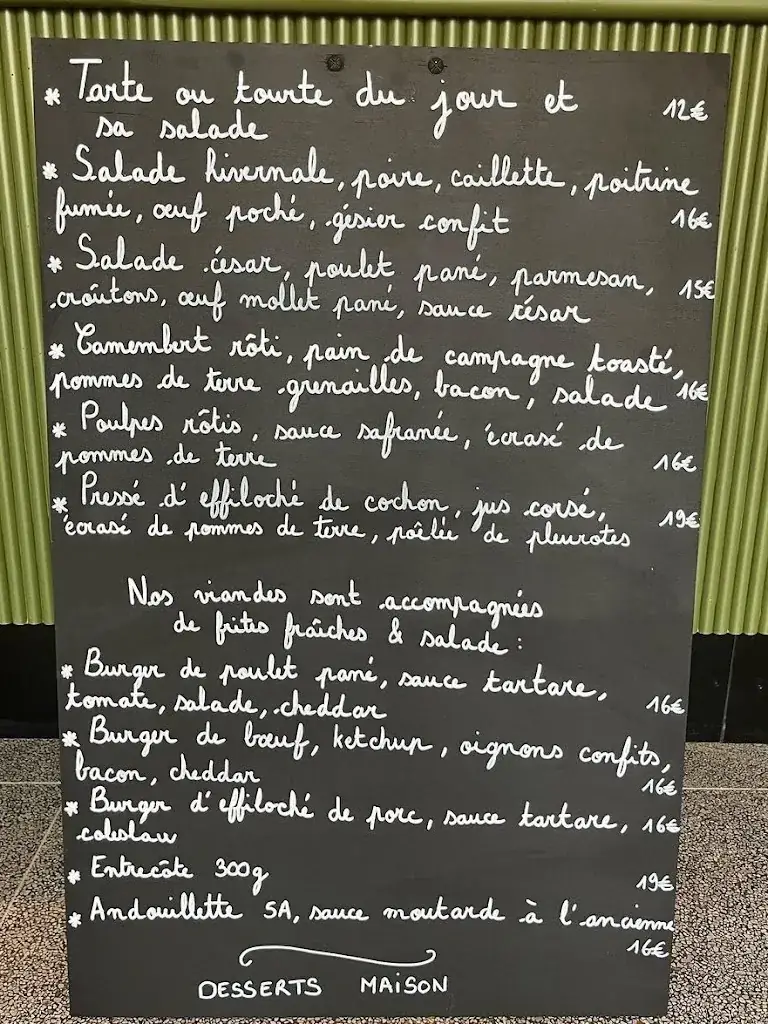 * Tarte ou tourte du jour et 12€
sa salade
* Salade hivernale, poire, caillette, poitrine
fumée, œuf poché, gésier confit 16€
* Salade césar, poulet pané, parmesan, 15€
croûtons, œuf mollet pané, sauce césar
* Camembert rôti, pain de campagne toasté,
pommes de terre grenailles, bacon, salade 16€
* Poulpes rôtis, sauce safranée, écrasé de
pommes de terre 16€
* Pressé d'effiloché de cochon, jus corsé, 19€
écrasé de pommes de terre, poêlée de pleurotes
Nos viandes sont accompagnées
de frites fraîches & salade :
* Burger de poulet pané, sauce tartare,
tomate, salade, cheddar 16€
* Burger de bœuf, ketchup, oignons confits,
bacon, cheddar 16€
* Burger d'effiloché de porc, sauce tartare, 16€
coleslaw
* Entrecôte 300g 19€
* Andouillette 5A, sauce moutarde à l'ancienne
16€
DESSERTS MAISON